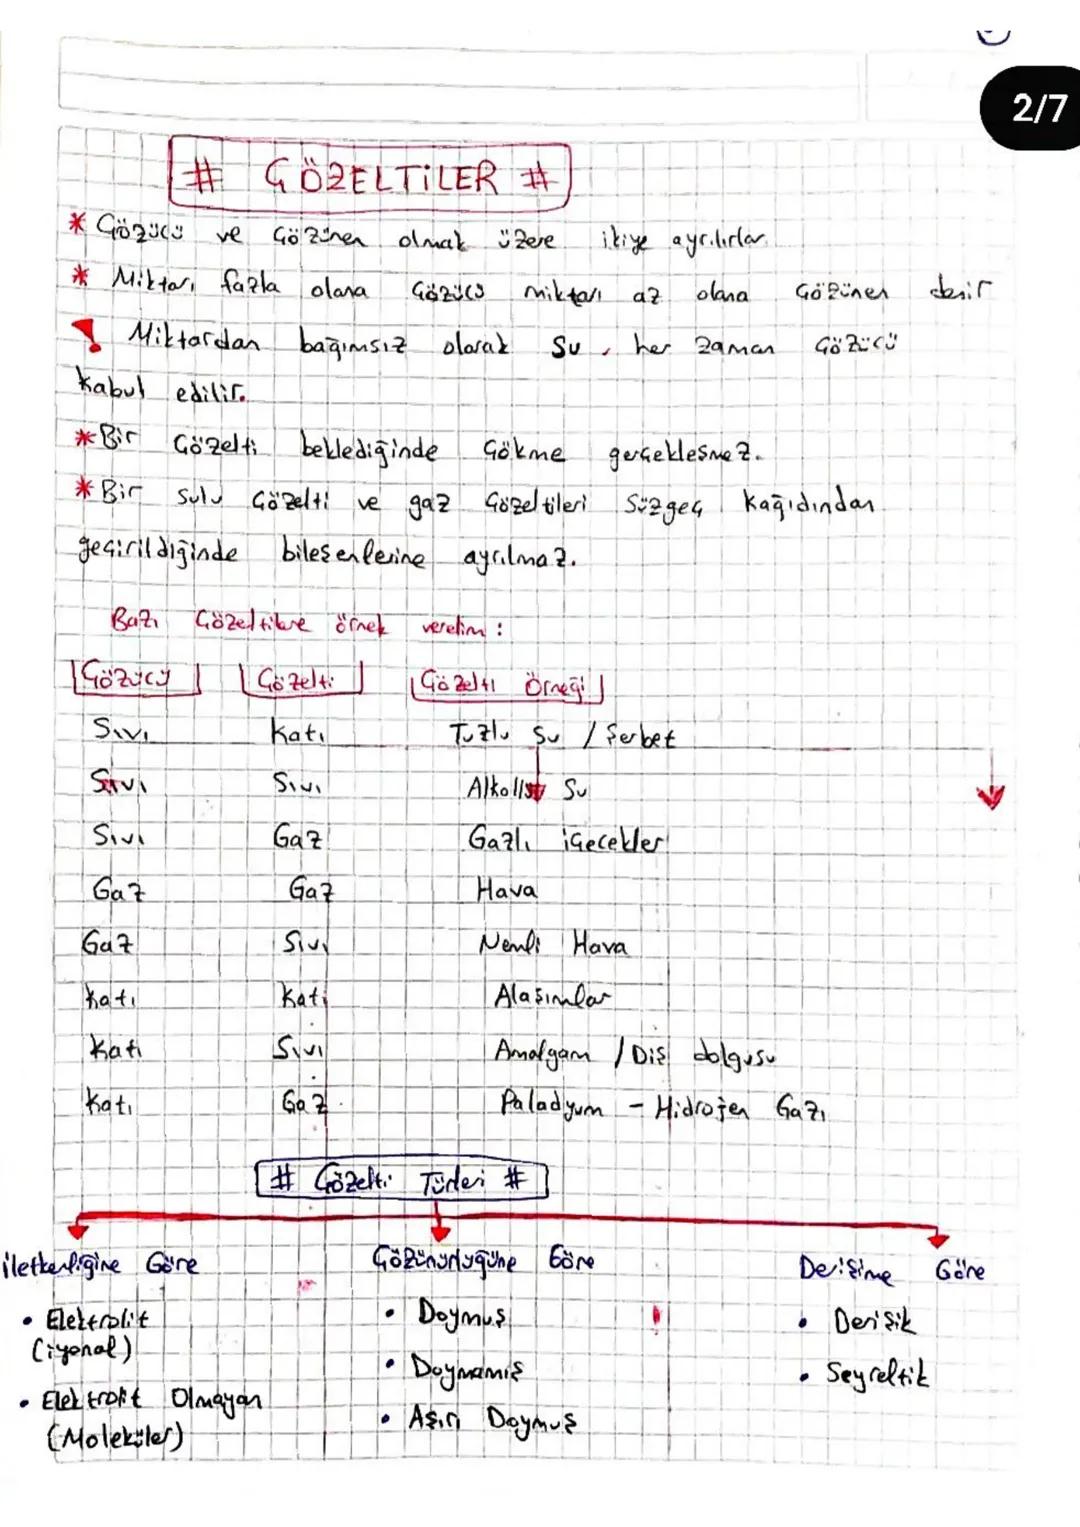 2/7
# ÇÖZELTİLER #
* Çözücü ve Çözünen olmak üzere ikiye ayrılırlar.
* Miktarı fazla olana Çözücü miktarı az olana Çözünen denir
! Miktardan bağımsız olarak Su, her zaman Çözücü
kabul edilir.
* Bir Çözelti beklediğinde Çökme gerçekleşmez.
* Bir Sulu Çözelti ve gaz Çözeltileri Süzgeç kağıdından
geçirildiğinde bileşenlerine ayrılmaz.
Bazı Çözeltilere örnek verelim :
Çözücü Çözelti Çözelti Örneği
Sıvı Katı Tuzlu Su / Şerbet
Sıvı Sıvı Alkollü Su
Sıvı Gaz Gazlı içecekler
Gaz Gaz Hava
Gaz Sıvı Nemli Hava
Katı Katı Alaşımlar
Katı Sıvı Amalgam / Diş dolgusu
Katı Gaz Paladyum - Hidrojen Gazı
# Çözelti Türleri #
iletkenliğine Göre Çözünürlüğüne Göre Derişime Göre
• Elektrolit • Doymuş • Derişik
(iyonal) • Doymamış • Seyreltik
• Elektrolit Olmayan • Aşırı Doymuş
(Moleküler)